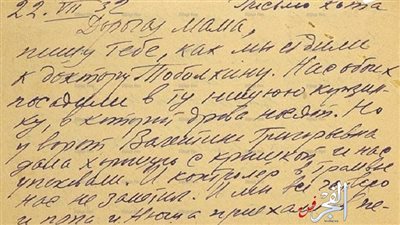 22. VII 32 Письмо кота
Дорогая мама,
пишу тебе, как мы ездили
к доктору Тоболкину. Нас обоих
посадили в ту нижнюю корзин-
ку, в которой дрова носят. Но
у ворот Валентина Григорьевна
дала с крышкой и нас
И контролер в трамвае
нас не заметил. И мы все
и папа и Нюша приехали
الفجر